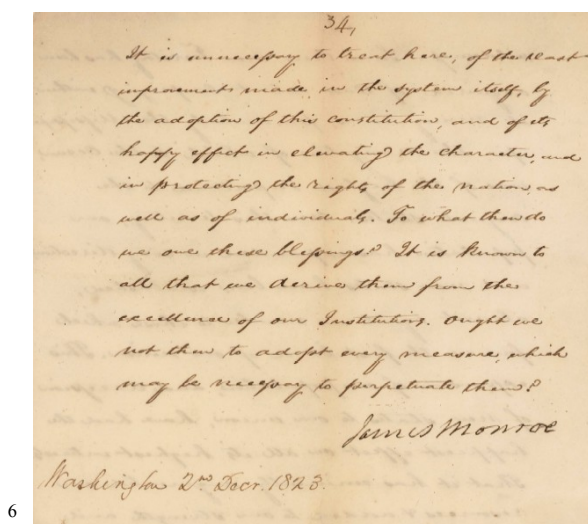 34,
It is unnecessary to treat here, of the vast
improvements made in the system itself, by
the adoption of this constitution, and of its
happy effect in elevating the character, and
in protecting the rights of the nation, as
well as of individuals. To what then do
we owe these blessings? It is known to
all that we derive them from the
excellence of our Institutions. Ought we
not then to adopt every measure, which
may be necessary to perpetuate them?
James Monroe
Washington 2nd Decr. 1823.
6